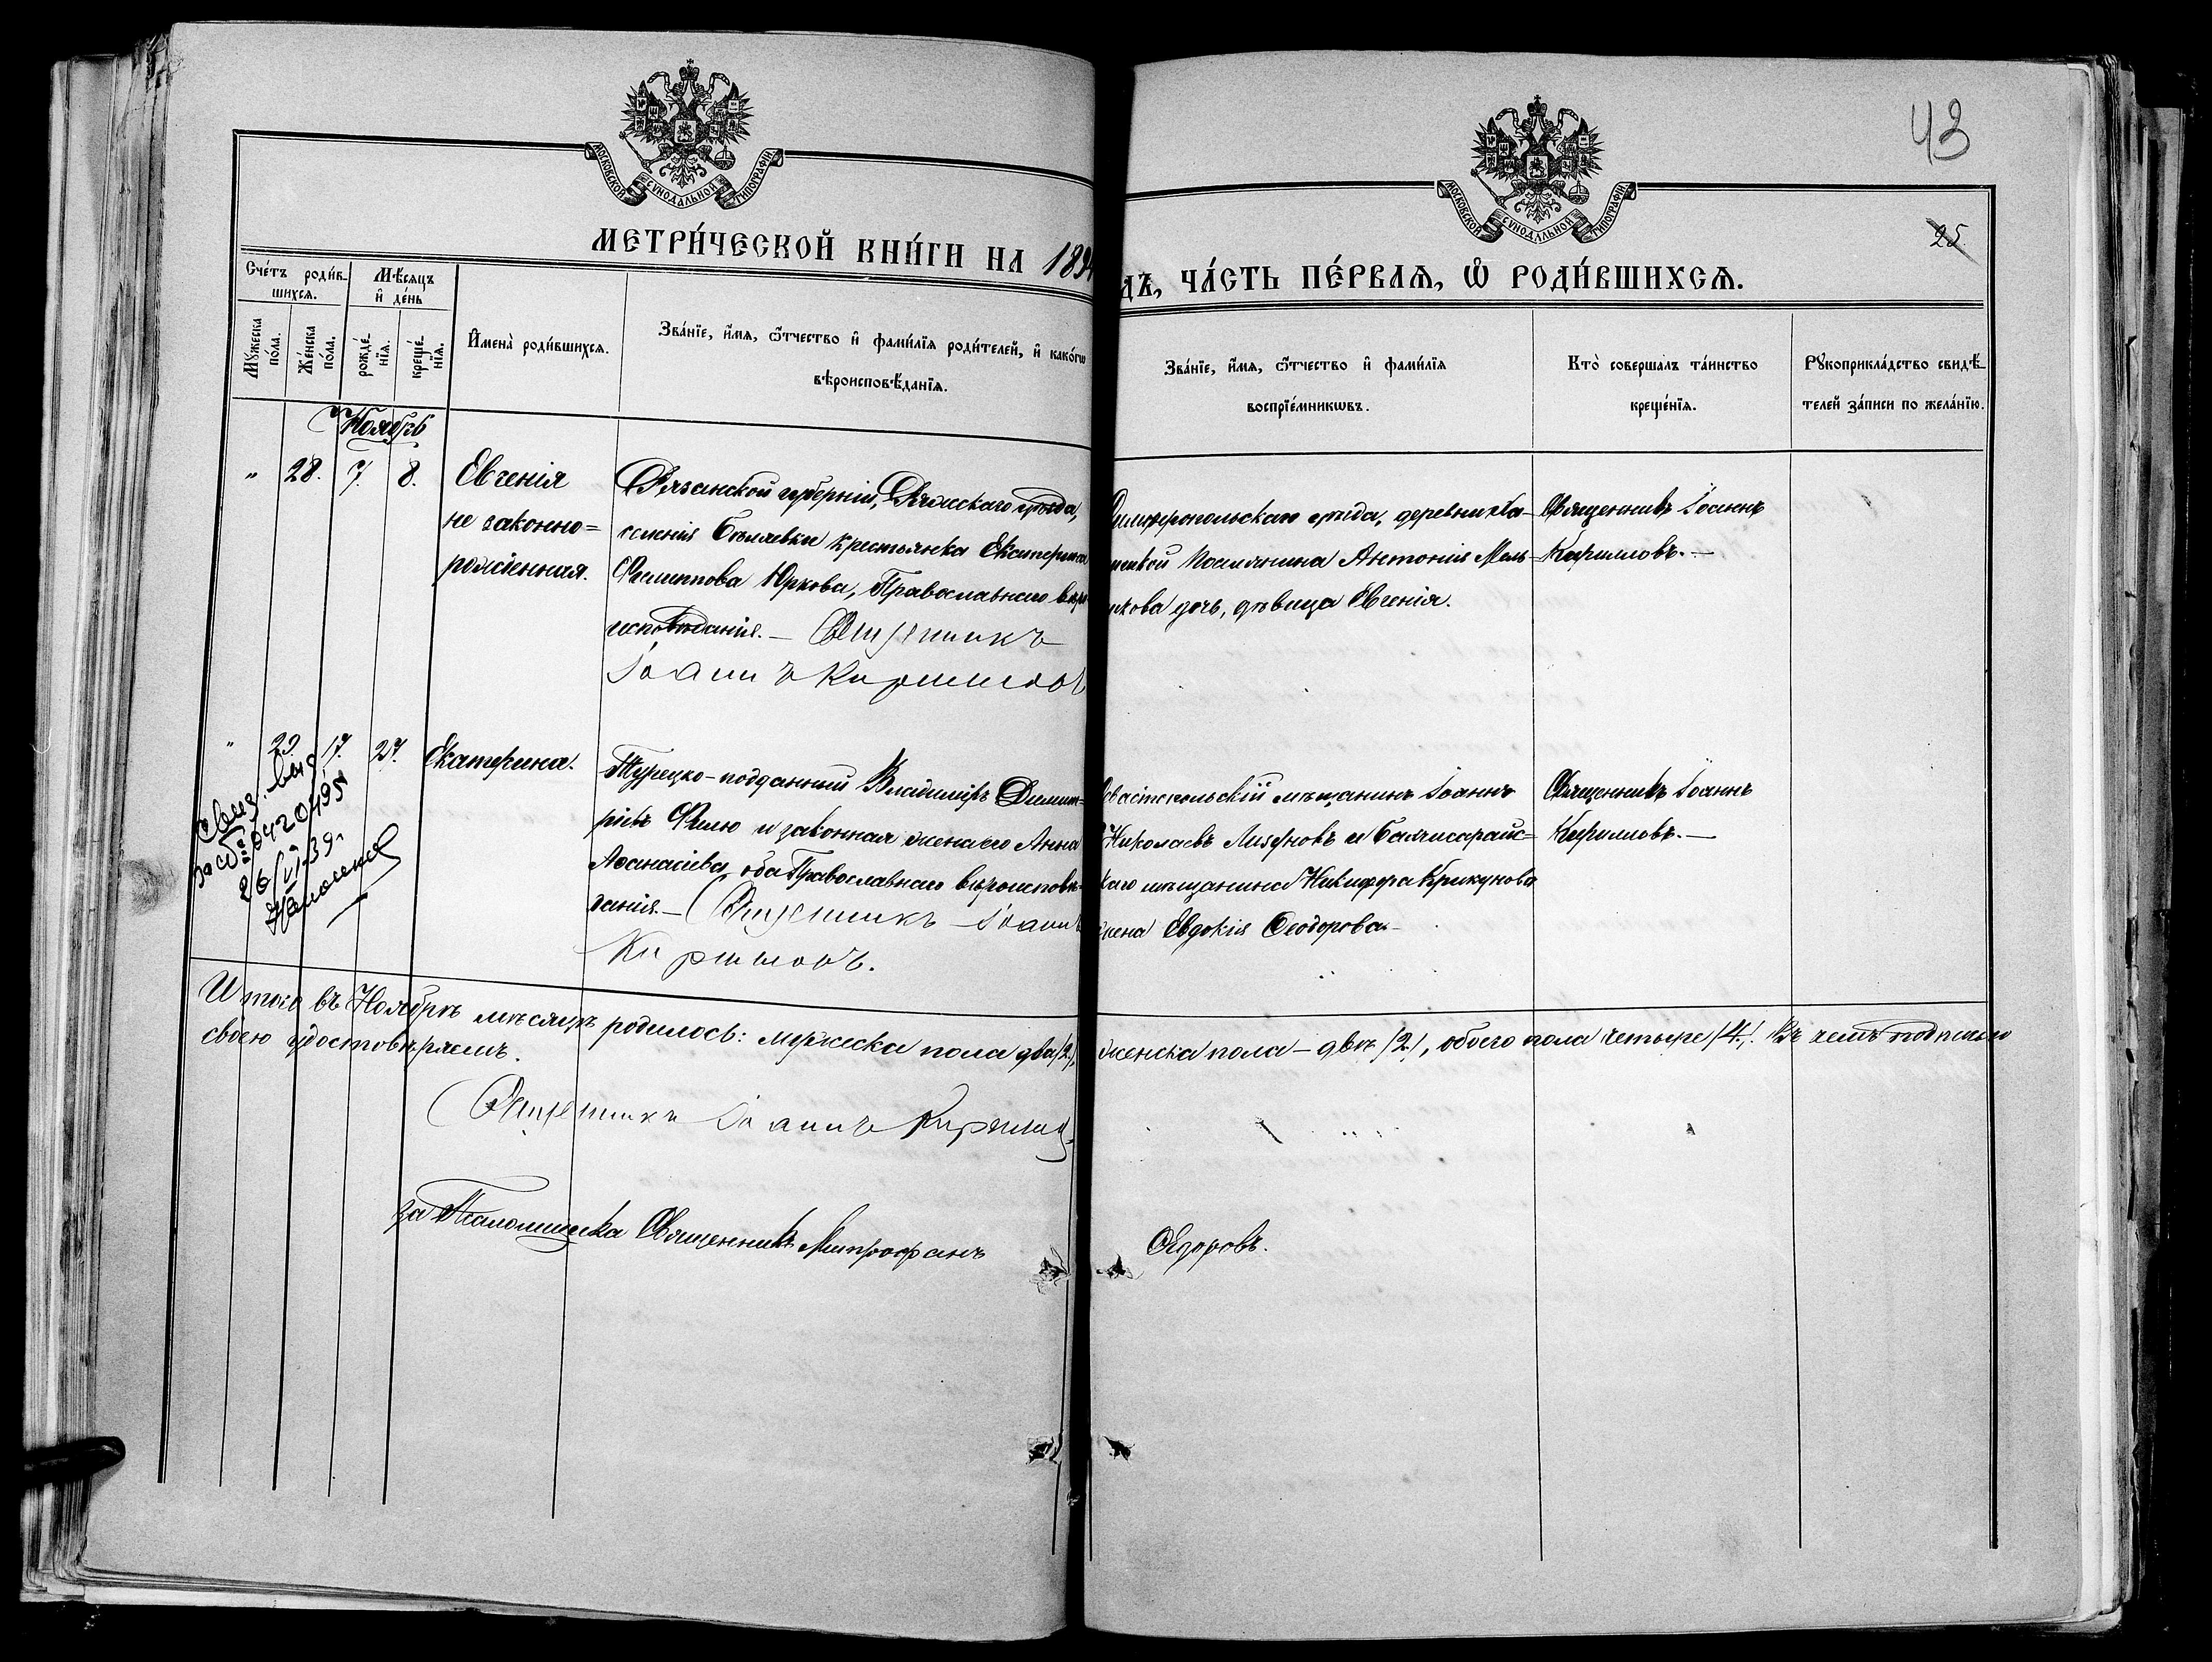 43
25
МОСКОВСКОЙ СѴНОДАЛЬНОЙ ТИПОГРАФІИ.
МОСКОВСКОЙ СѴНОДАЛЬНОЙ ТИПОГРАФІИ.
МЕТРИ́ЧЕСКОЙ КНИ́ГИ НА 189
ДЪ, ЧА́СТЬ ПЕ́РВАЯ, Ѿ РОДИ́ВШИХСЯ.
Сче́тъ роди́в-
шихся.
Мѣ́сяцъ
и҆ де́нь
Мꙋ́жеска
по́ла.
Же́нска
по́ла.
рожде́-
нїя.
креще́-
нїя.
И҆мена̀ роди́вшихся.
Зва́нїе, и҆́мя, ѻ҆́тчество и҆ фами́лїя роди́телей, и҆ како́гѡ
вѣроисповѣ́данїя.
Зва́нїе, и҆́мя, ѻ҆́тчество и҆ фами́лїя
воспрїе́мникѡвъ.
Кто̀ соверша́лъ та́инство
креще́нїя.
Рꙋкоприкла́дство свидѣ́-
телей за́писи по жела́нїю.
Ноябрь
" 28. 7. 8.
Евгенія
не законно=
рожденная.
Рязанской губерніи, Ряжскаго уѣзда,
селенія Бѣляевки крестьянка Екатерина
Филиппова Юркова, Православнаго вѣро
исповѣданія. — Священникъ
Іоаннъ Кирилловъ
Симферопольскаго уѣзда, деревни
поселянина Антонія Мель-
никова дочь, дѣвица Евгенія.
Священникъ Іоаннъ
Кирилловъ. —
" 29. 17. 27.
Екатерина.
Турецко-подданный Владиміръ Димит-
ріевъ Филю и законная жена его Анна
Аѳанасіева, оба Православнаго вѣроисповѣ-
данія. — Священникъ Іоаннъ
Кирилловъ.
Севастопольскій мѣщанинъ Іоаннъ
Николаевъ и Бахчисарайс=
каго мѣщанина Никифора Крикунова
жена Евдокія Ѳеодорова.
Священникъ Іоаннъ
Кирилловъ. —
Свид. выд
за № 0420495
26/VI-39г.
Итого въ Ноябрѣ мѣсяцѣ родилось: мужеска пола два /2/, женска пола — двѣ /2/, обоего пола четыре /4/. Въ чемъ подписью
своею удостовѣряемъ.
Священникъ Іоаннъ Кирилловъ
за Псаломщика Священникъ Митрофанъ
Ѳедоровъ.